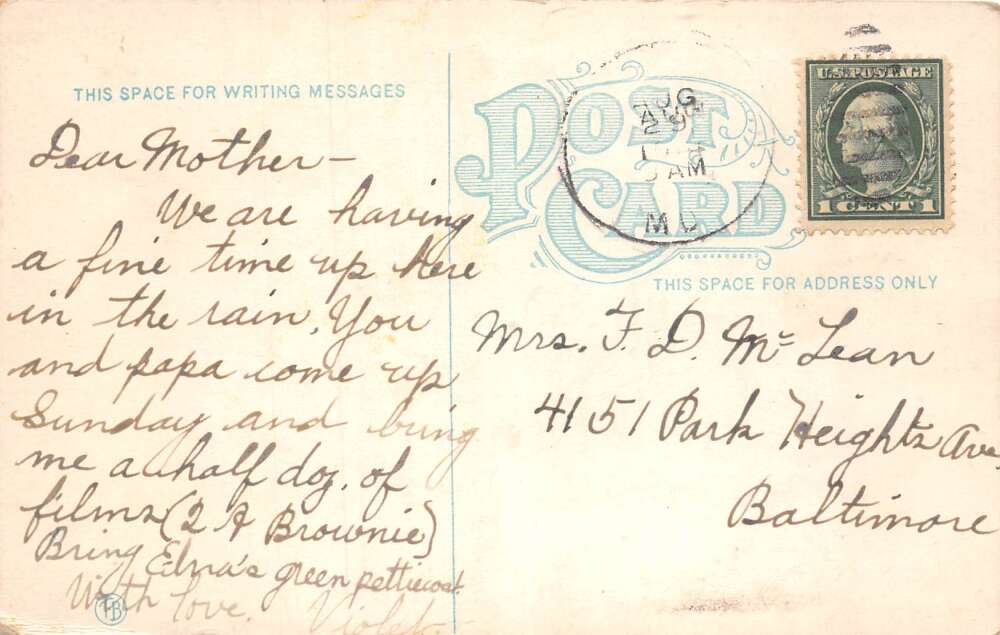 THIS SPACE FOR WRITING MESSAGES
Dear Mother -
We are having
a fine time up here
in the rain. You
and papa come up
Sunday and bring
me a half doz. of
films (2 A Brownie)
Bring Elna's green pettiecoat.
With love. Violet.
TB
POST CARD
AUG
29
AM
MD
U.S. POSTAGE
1 CENT 1
THIS SPACE FOR ADDRESS ONLY
Mrs. F. D. Mc Lean
4151 Park Heights Ave
Baltimore